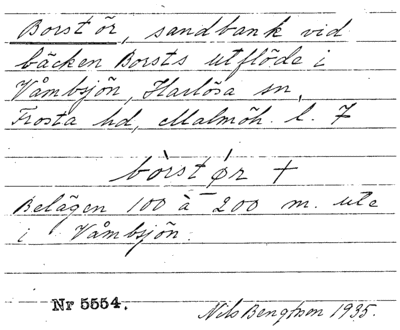 Borst ör, sandbank vid
bäcken Borsts utflöde i
Våmbsjön, Harlösa sn,
Frosta hd, Malmöh. l. 7
bòrst ǿr +
Belägen 100 à 200 m. ute
i Våmbsjön.
Nr 5554. Nils Bengtson 1935.